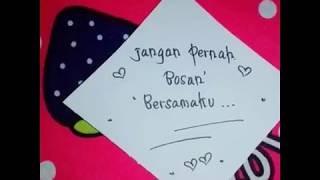 Jangan Pernah
Bosan'
'Bersamaku ...